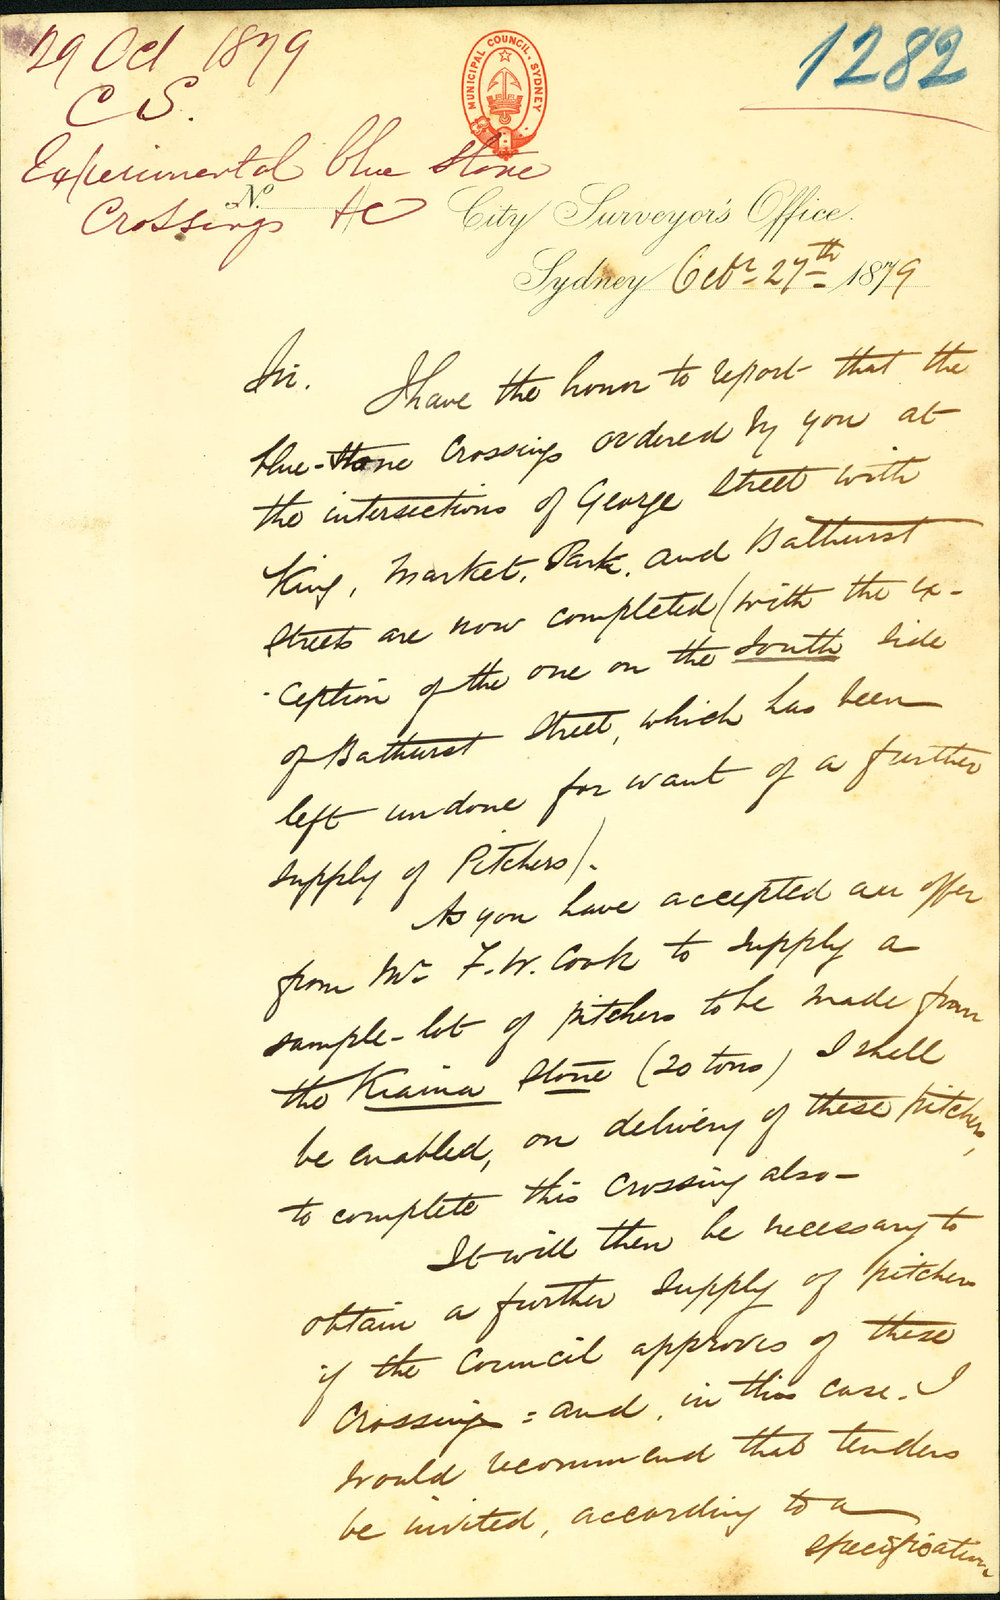 29 Oct 1879
C S.
Experimental blue stone
Crossings &c
1282
MUNICIPAL COUNCIL. SYDNEY
No.
City Surveyor's Office.
Sydney Octr. 27th 1879
Sir. I have the honor to report that the
blue-stone Crossings ordered by you at
the intersections of George Street with
King, Market, Park, and Bathurst
Streets are now completed (with the ex-
-ception of the one on the South side
of Bathurst Street, which has been
left undone for want of a further
supply of Pitchers).
As you have accepted an offer
from Mr. F. W. Cook to supply a
sample-lot of pitchers to be made from
the Kiama Stone (20 tons) I shall
be enabled, on delivery of these pitchers,
to complete this Crossing also -
It will then be necessary to
obtain a further supply of pitchers
if the Council approves of these
Crossings = and, in this case. I
would recommend that tenders
be invited, according to a
specification